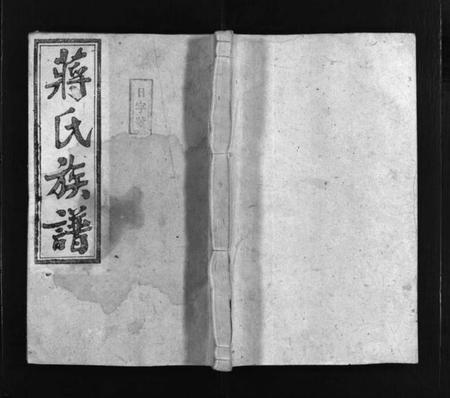 蔣氏族譜
日字號